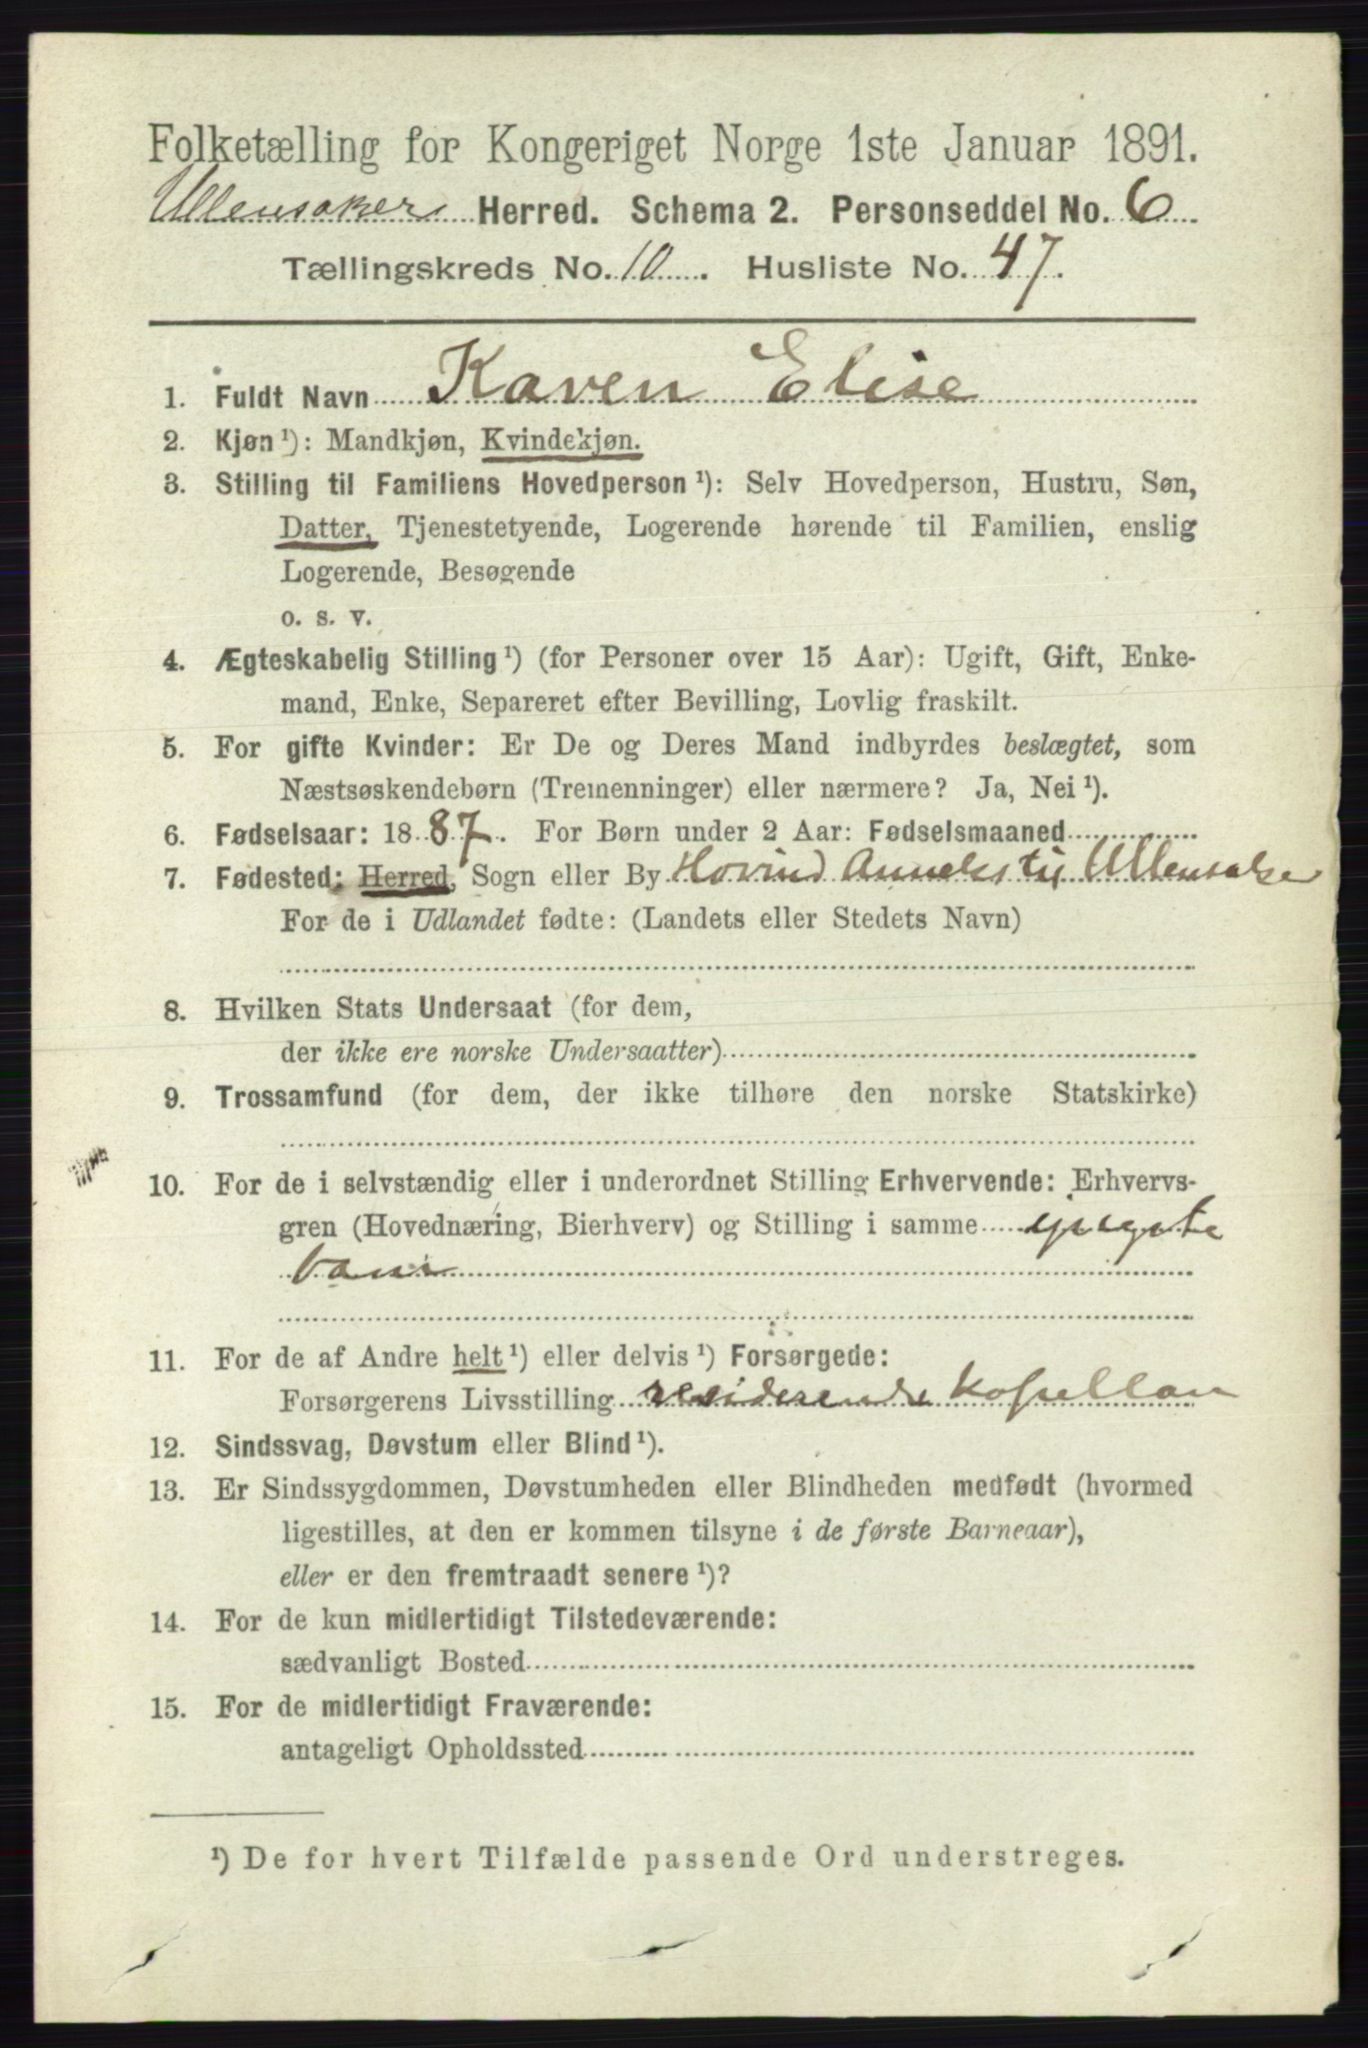 Folketælling for Kongeriget Norge 1ste Januar 1891.
Ullensaker Herred. Schema 2. Personseddel No. 6
Tællingskreds No. 10. Husliste No. 47.
1. Fuldt Navn Karen Elise
2. Kjøn¹): Mandkjøn, Kvindekjøn.
3. Stilling til Familiens Hovedperson¹): Selv Hovedperson, Hustru, Søn,
Datter, Tjenestetyende, Logerende hørende til Familien, enslig
Logerende, Besøgende
o. s. v.
4. Ægteskabelig Stilling¹) (for Personer over 15 Aar): Ugift, Gift, Enke-
mand, Enke, Separeret efter Bevilling, Lovlig fraskilt.
5. For gifte Kvinder: Er De og Deres Mand indbyrdes beslægtet, som
Næstsøskendebørn (Tremenninger) eller nærmere? Ja, Nei¹).
6. Fødselsaar: 1887. For Børn under 2 Aar: Fødselsmaaned
7. Fødested: Herred, Sogn eller By Hovind Anneks til Ullensaker
For de i Udlandet fødte: (Landets eller Stedets Navn)
8. Hvilken Stats Undersaat (for dem,
der ikke ere norske Undersaatter)
9. Trossamfund (for dem, der ikke tilhøre den norske Statskirke)
10. For de i selvstændig eller i underordnet Stilling Erhvervende: Erhvervs-
gren (Hovednæring, Bierhverv) og Stilling i samme
11. For de af Andre helt¹) eller delvis¹) Forsørgede:
Forsørgerens Livsstilling residerende Kapellan
12. Sindssvag, Døvstum eller Blind¹).
13. Er Sindssygdommen, Døvstumheden eller Blindheden medfødt (hvormed
ligestilles, at den er kommen tilsyne i de første Barneaar),
eller er den fremtraadt senere¹)?
14. For de kun midlertidigt Tilstedeværende:
sædvanligt Bosted
15. For de midlertidigt Fraværende:
antageligt Opholdssted
¹) De for hvert Tilfælde passende Ord understreges.